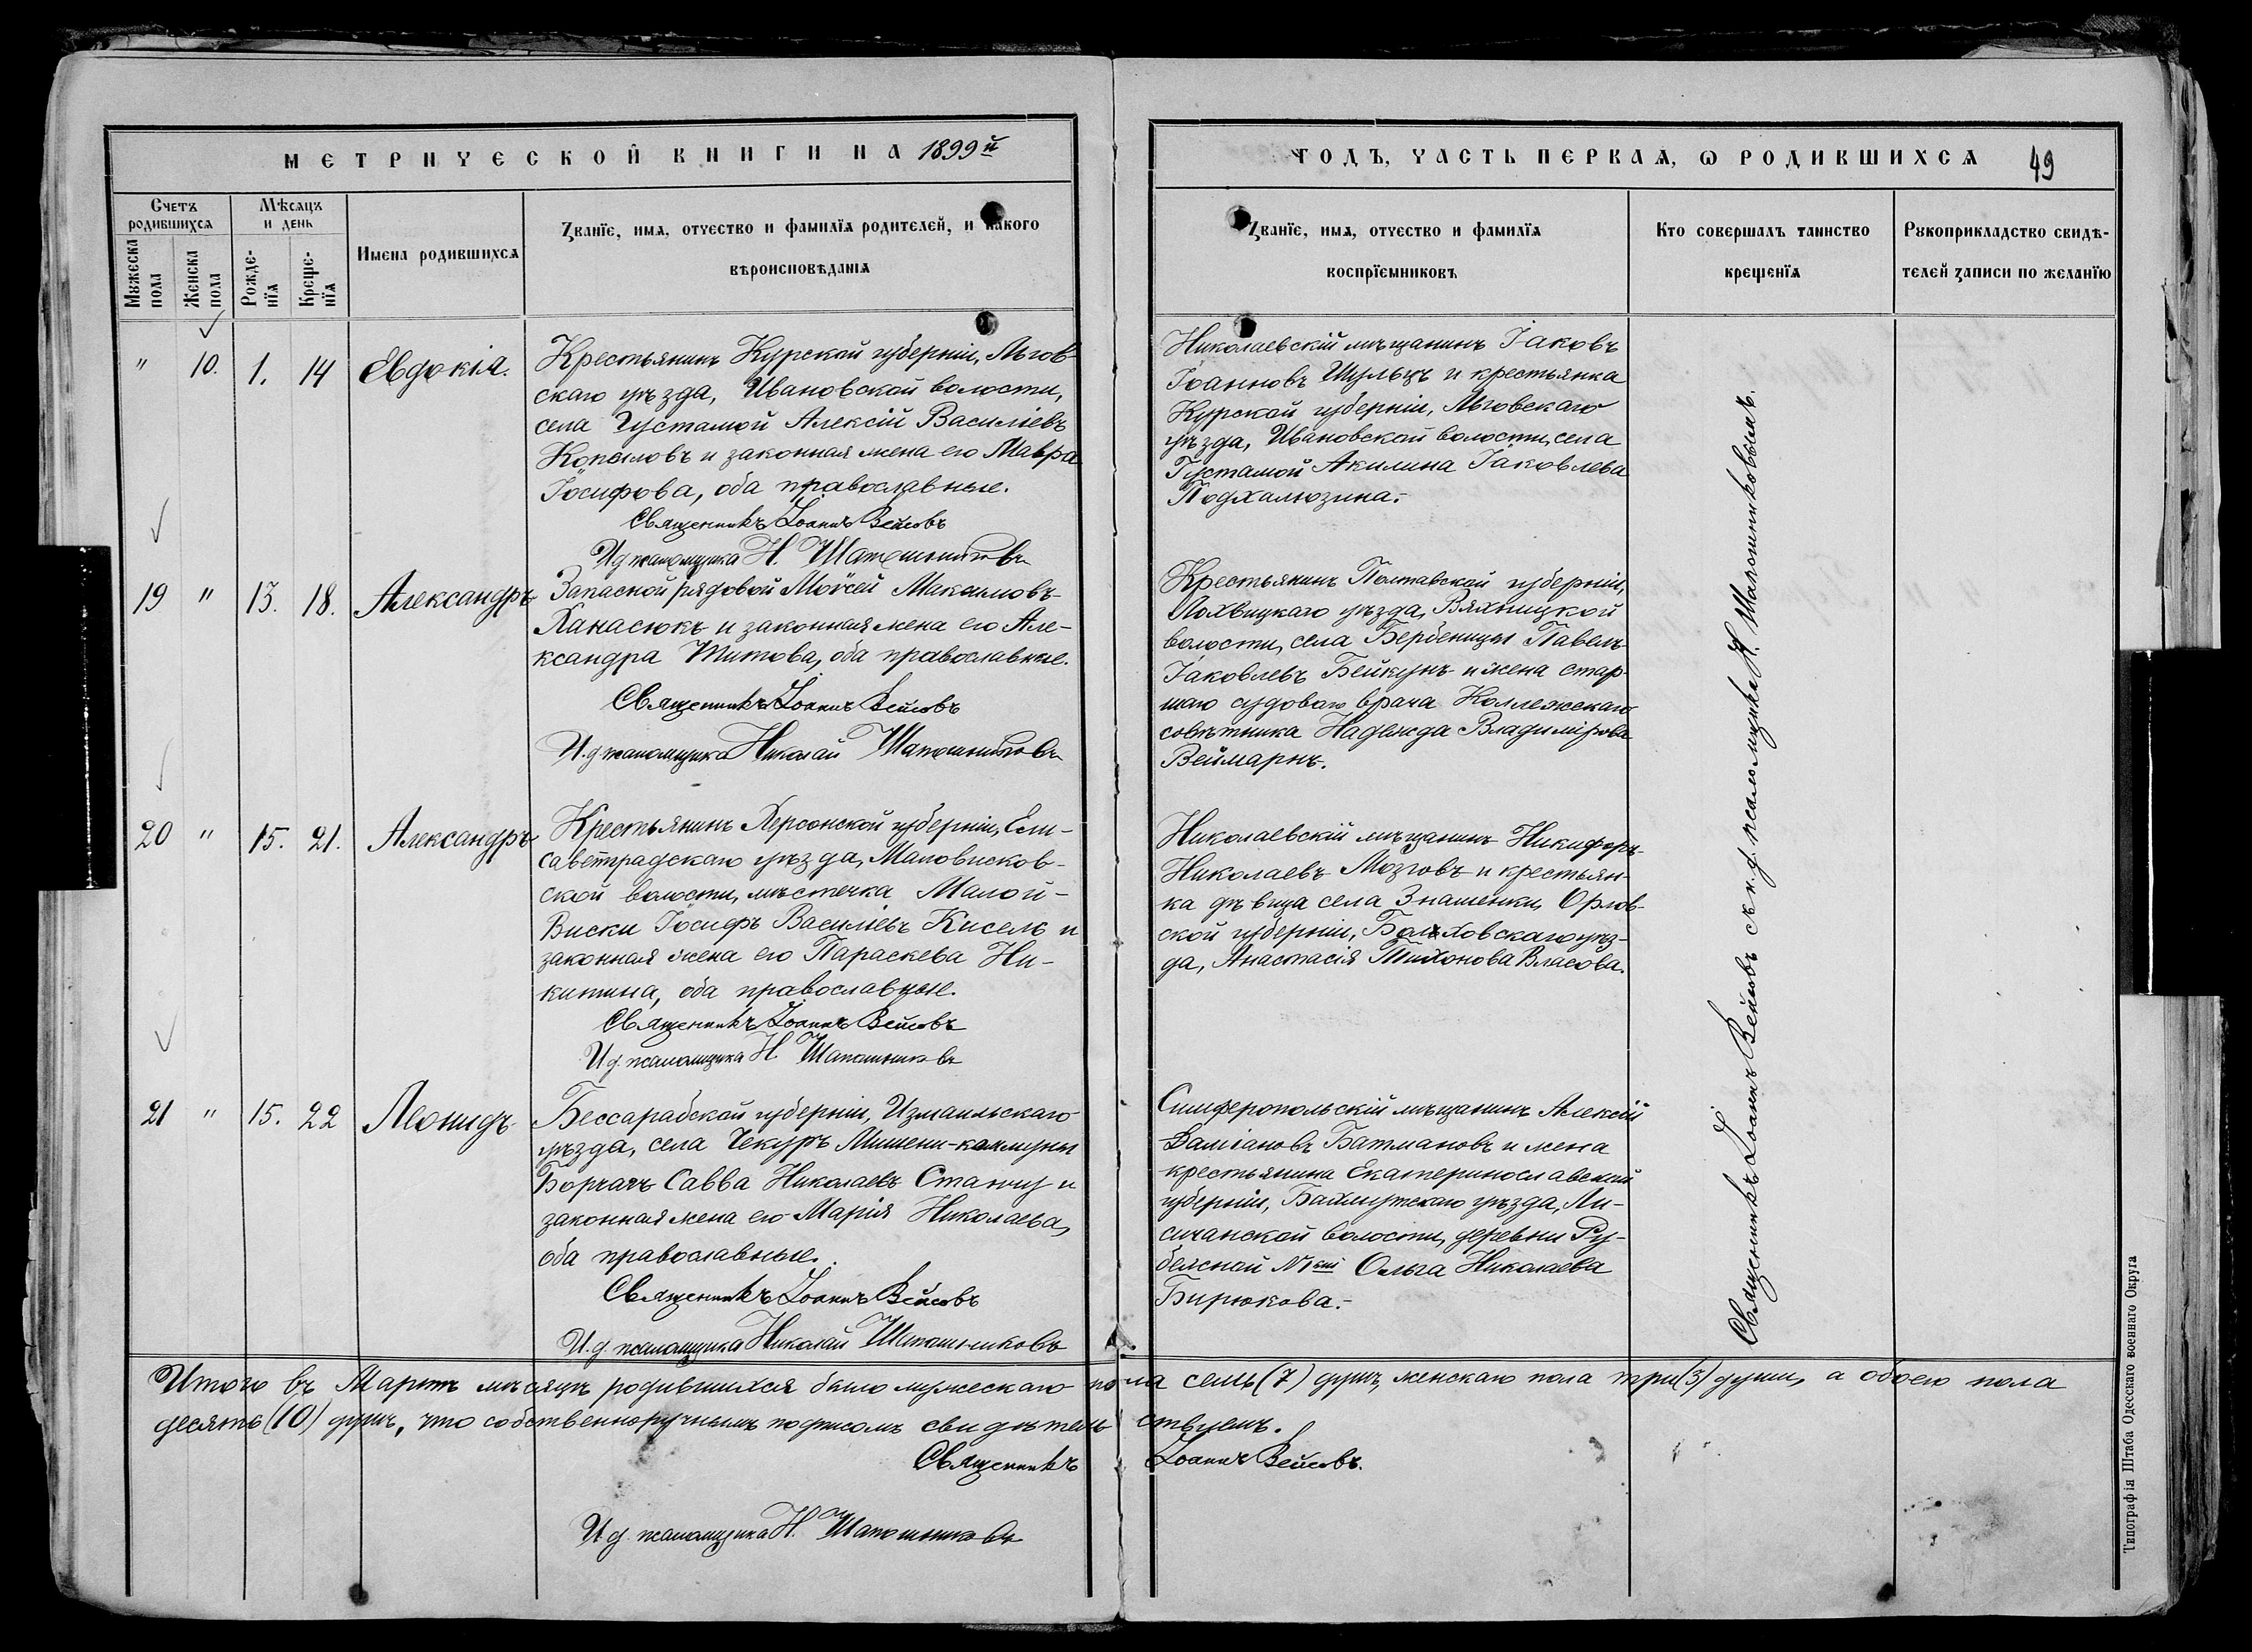 МЕТРИЧЕСКОЙ КНИГИ НА 1899й
ГОДЪ, ЧАСТЬ ПЕРВАЯ, Ѡ РОДИВШИХСЯ 49
Счетъ родившихся
Мужеска пола
Женска пола
Мѣсяцъ и день
Рожденїя
Крещенїя
Имена родившихся
Званїе, имя, отчество и фамилїя родителей, и какого
вѣроисповѣданїя
Званїе, имя, отчество и фамилїя
воспрїемниковъ
Кто совершалъ таинство
крещенїя
Рукоприкладство свидѣ-
телей записи по желанїю
" 10. 1. 14 Евдокія.
Крестьянинъ Курской губерніи, Льгов-
скаго уѣзда, Ивановской волости,
села Густомой Алексій Василіевъ
Копыловъ и законная жена его Мавра
Іосифова, оба православные.
Священникъ Іоаннъ Вейсовъ
И д псаломщика Н. Шапошниковъ
Николаевскій мѣщанинъ Іаковъ
Іоанновъ Шульцъ и крестьянка
Курской губерніи, Льговскаго
уѣзда, Ивановской волости, села
Густомой Акилина Іаковлева
Подхалюзина.-
19 " 13. 18. Александръ
Запасной рядовой Моисей Максимовъ
Ханасюкъ и законная жена его Але-
ксандра Титова, оба православные.
Священникъ Іоаннъ Вейсовъ
И.д псаломщика Николай Шапошниковъ
Крестьянинъ Полтавской губерніи,
Лохвицкаго уѣзда, Вяхницкой
волости, села Бербеницы Павелъ
Іаковлевъ Бейкунъ и жена стар-
шаго судоваго врача Коллежскаго
совѣтника Надежда Владимірова
Веймарнъ.
20 " 15. 21. Александръ
Крестьянинъ Херсонской губерніи, Ели-
саветградскаго уѣзда, Маловисков-
ской волости, мѣстечка Малой-
Виски Іосифъ Василіевъ Кисель и
законная жена его Параскева Ни-
китина, оба православные.
Священникъ Іоаннъ Вейсовъ
И д. псаломщика Н. Шапошниковъ
Николаевскій мѣщанинъ Никифоръ
Николаевъ Мозговъ и крестьян-
ка дѣвица села Знаменки, Орлов-
ской губерніи, Болховскаго уѣз-
да, Анастасія Тихонова Власова.
21 " 15. 22 Леонидъ
Бессарабской губерніи, Измаильскаго
уѣзда, села Чекуръ Мишени-коммуны
Борчагъ Савва Николаевъ Станчу и
законная жена его Марія Николаева,
оба православные.
Священникъ Іоаннъ Вейсовъ
И.д псаломщика Николай Шапошниковъ
Симферопольскій мѣщанинъ Алексій
Даміановъ Батмановъ и жена
крестьянина Екатеринославской
губерніи, Бахмутскаго уѣзда, Ли-
сичанской волости, деревни Ру-
бежной Ольга Николаева
Бирюкова.-
Священникъ Іоаннъ Вейсовъ съ и. д. псаломщика Н. Шапошниковымъ.
Итого въ Мартѣ мѣсяцѣ родившихся было мужескаго пола семь (7) душъ, женскаго пола три (3) души, а обоего пола
десять (10) душъ, что собственноручнымъ подписомъ свидѣтельствуемъ.
Священникъ Іоаннъ Вейсовъ.
И д. псаломщика Н. Шапошниковъ
Типографія Штаба Одесскаго военнаго Округа